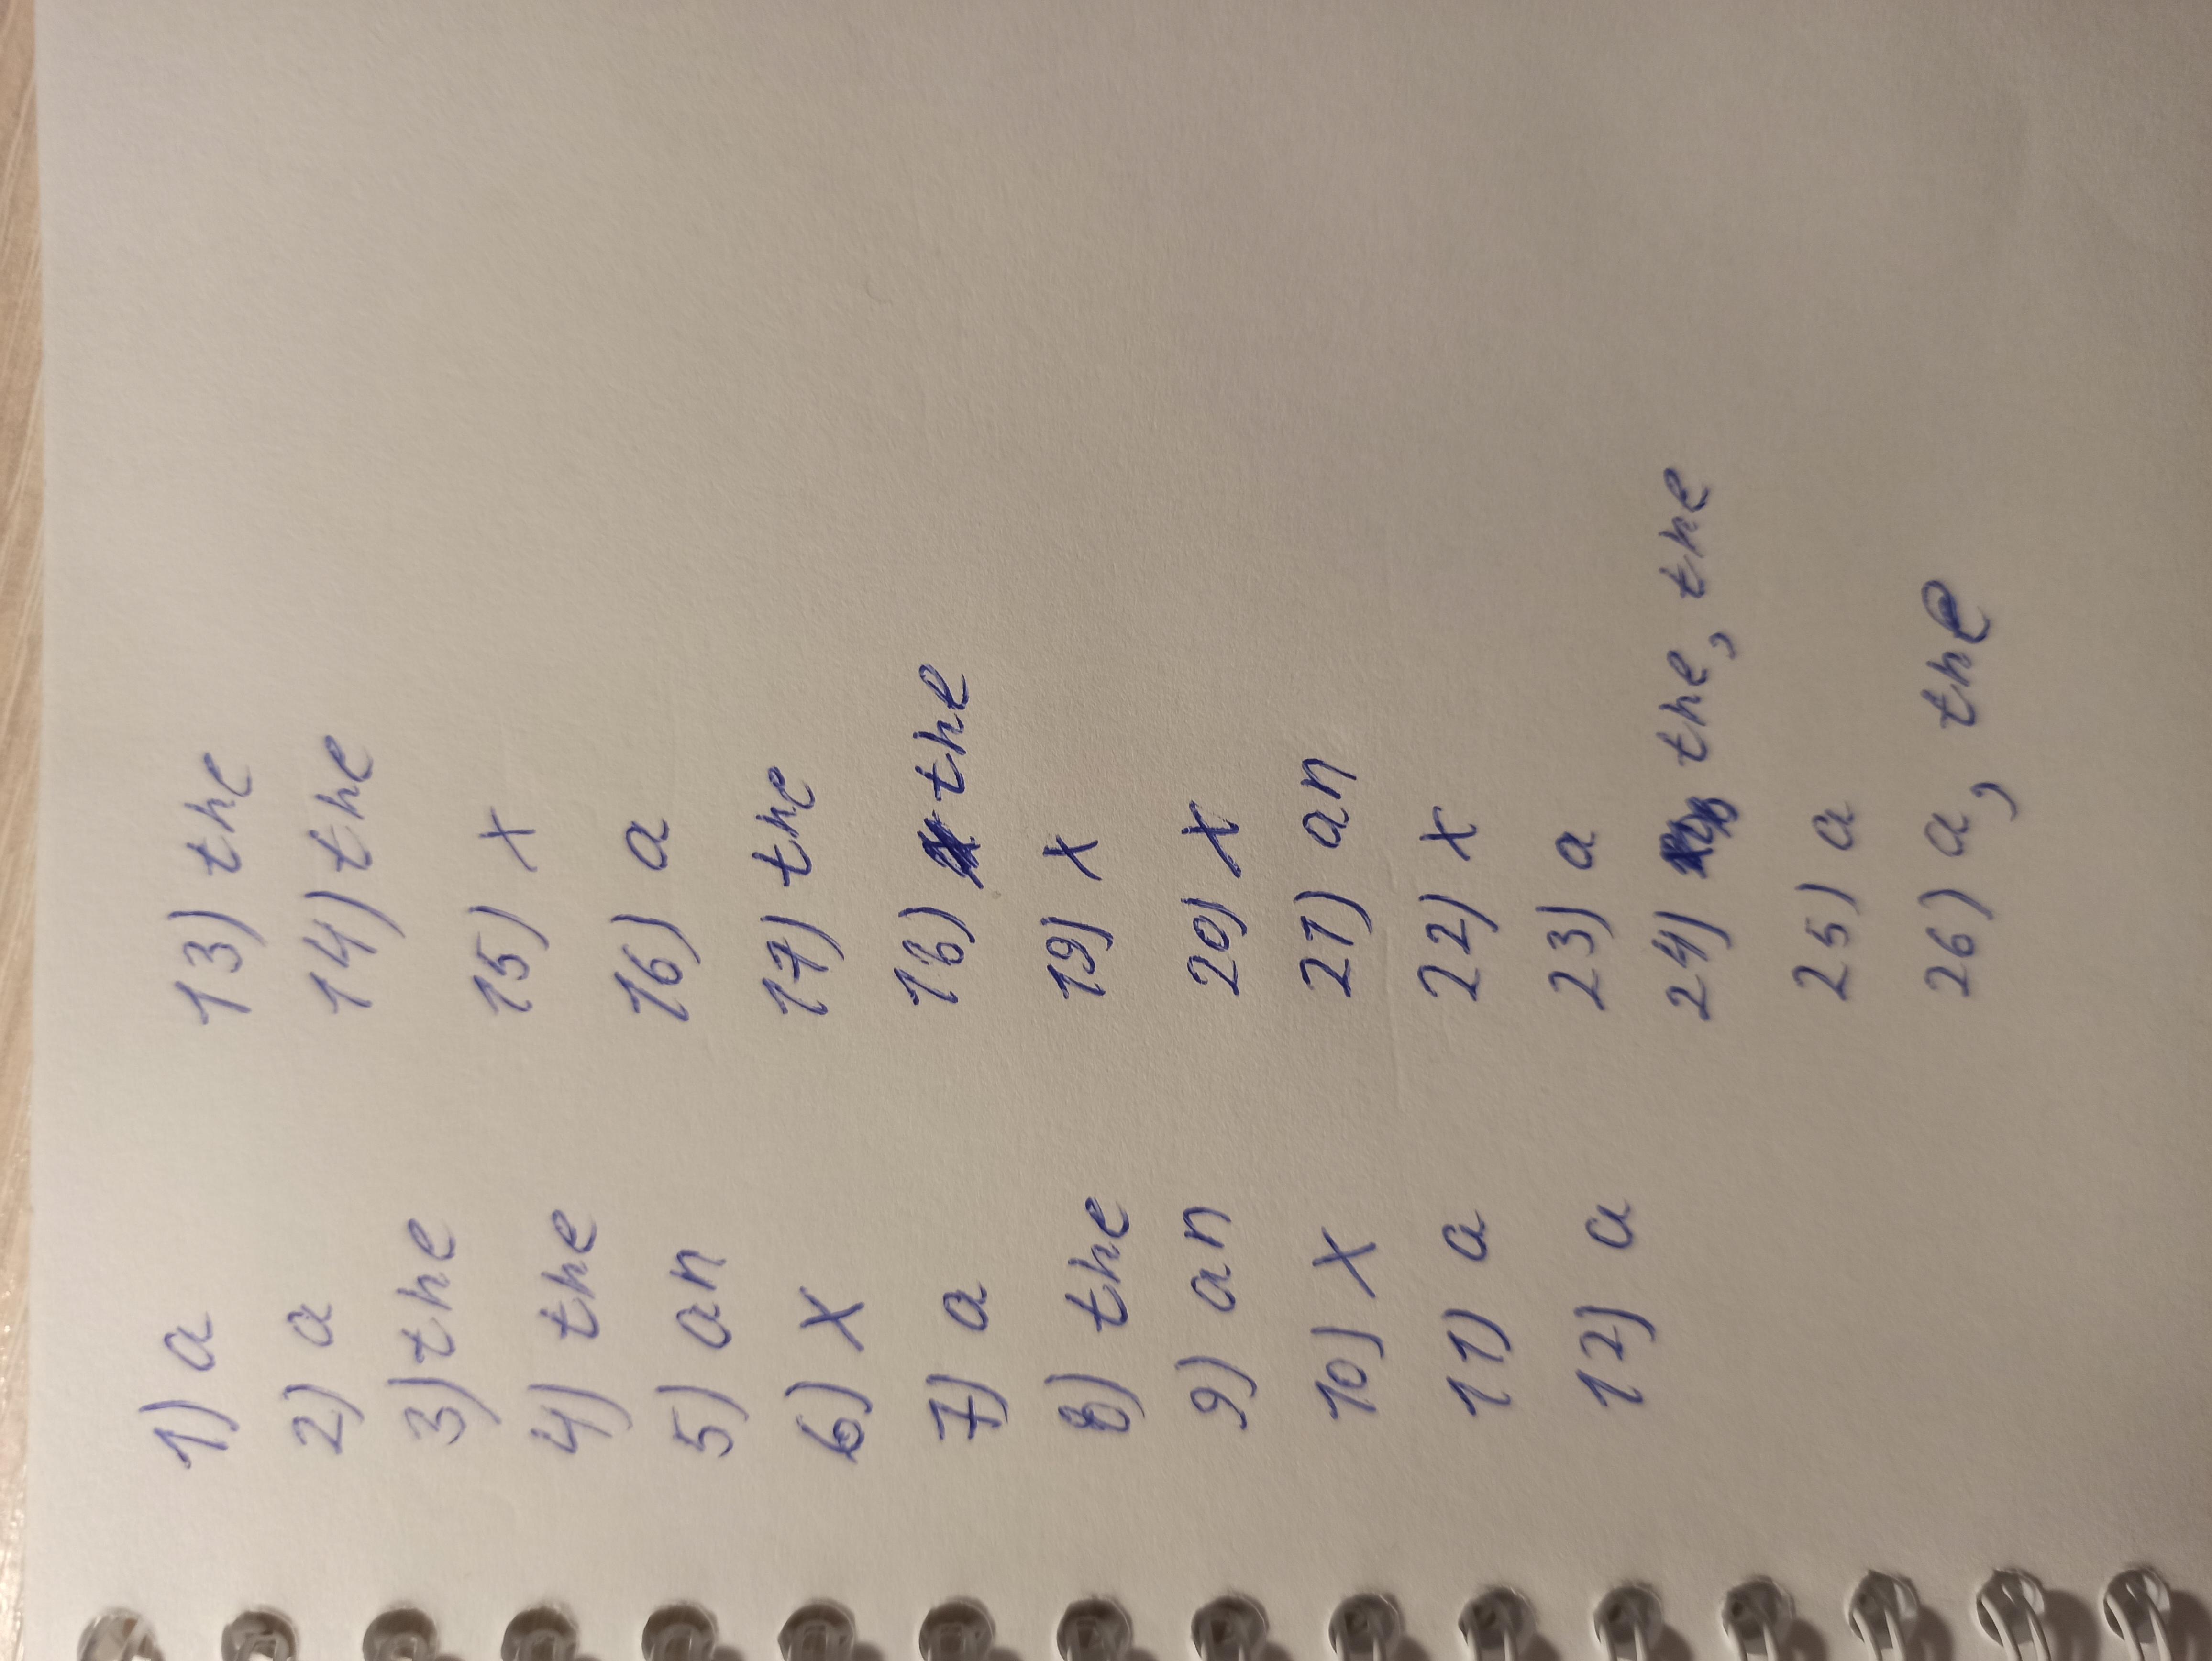 1) a
2) a
3) the
4) the
5) an
6) x
7) a
8) the
9) an
10) x
11) a
12) a
13) the
14) the
15) x
16) a
17) the
18) the
19) x
20) x
21) an
22) x
23) a
24) the, the
25) a
26) a, the